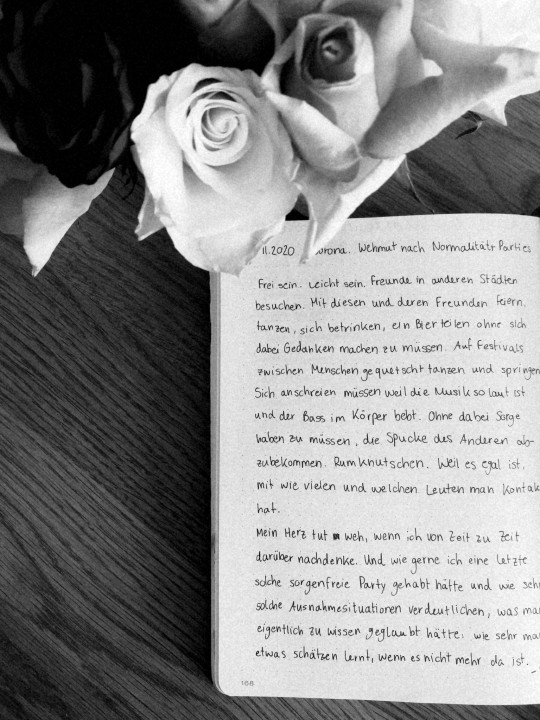 11.2020 Corona. Wehmut nach Normalität & Parties
Frei sein. Leicht sein. Freunde in anderen Städten
besuchen. Mit diesen und deren Freunden feiern,
tanzen, sich betrinken, ein Bier teilen ohne sich
dabei Gedanken machen zu müssen. Auf Festivals
zwischen Menschen gequetscht tanzen und springen
Sich anschreien müssen weil die Musik so laut ist
und der Bass im Körper bebt. Ohne dabei Sorge
haben zu müssen, die Spucke des Anderen ab-
zubekommen. Rumknutschen. Weil es egal ist,
mit wie vielen und welchen Leuten man Kontak
hat.
Mein Herz tut weh, wenn ich von Zeit zu Zeit
darüber nachdenke. Und wie gerne ich eine letzte
solche sorgenfreie Party gehabt hätte und wie sehr
solche Ausnahmesituationen verdeutlichen, was man
eigentlich zu wissen geglaubt hätte: wie sehr man
etwas schätzen lernt, wenn es nicht mehr da ist.
168